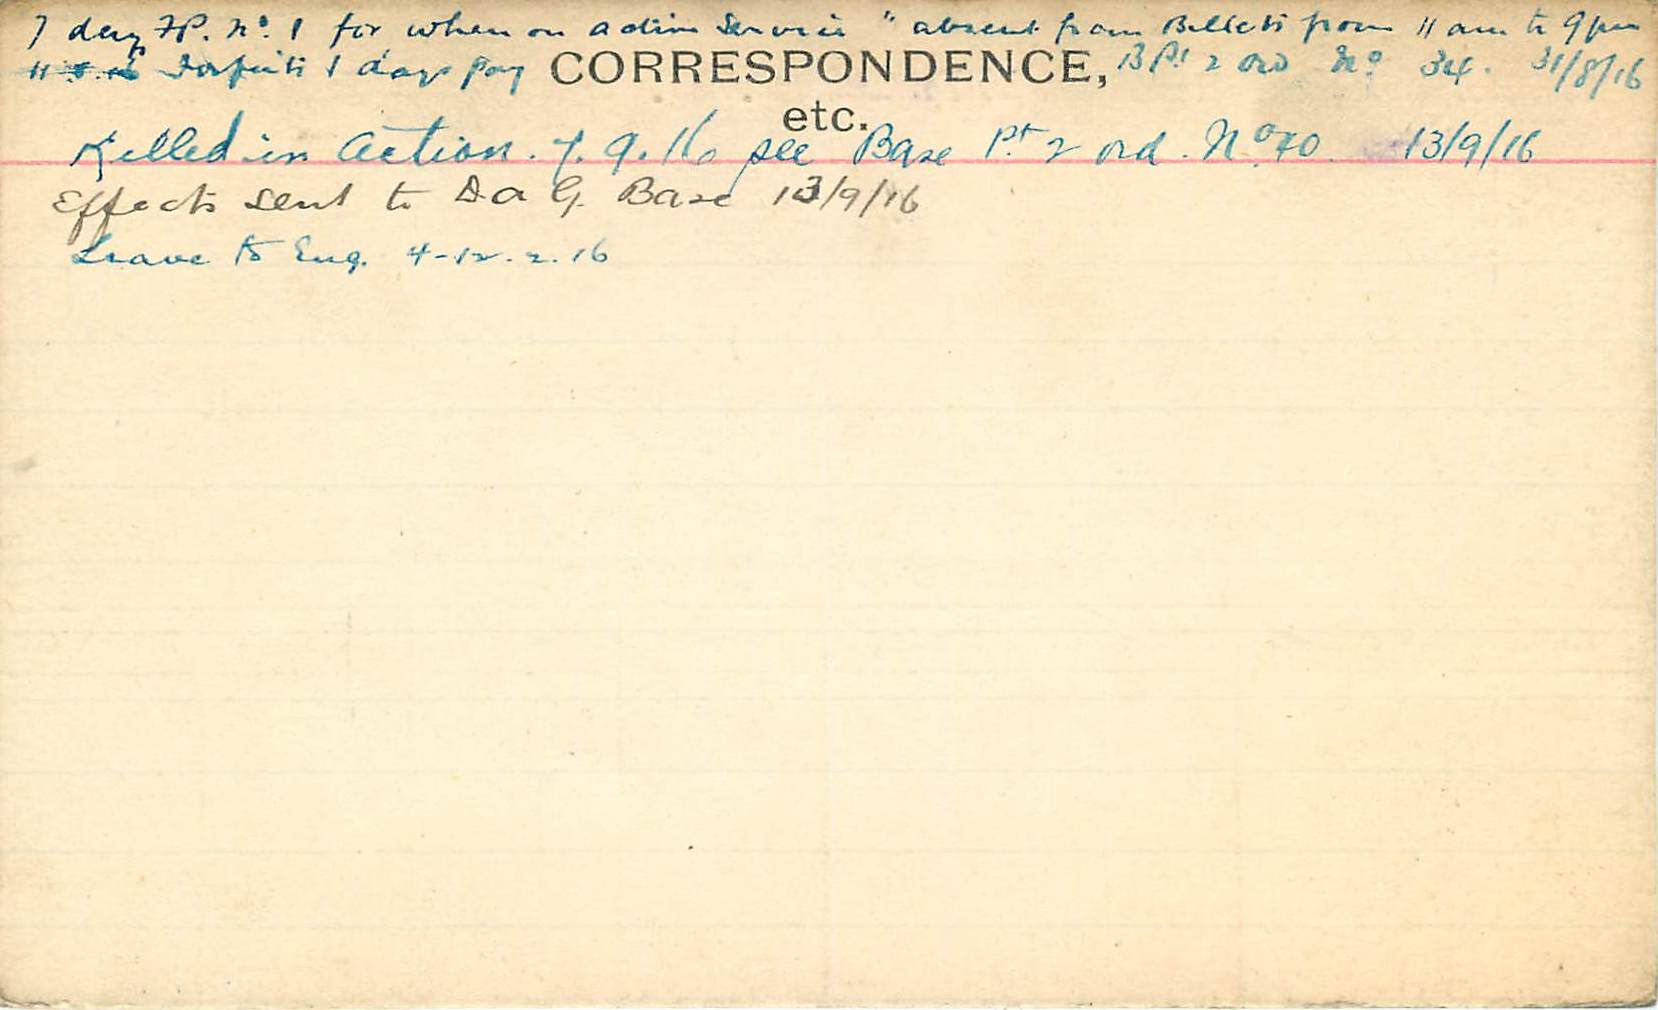 7 days FP. No. 1 for when on active service "absent from Billets from 11 am to 9 pm
11.8.16 Forfeits 1 days pay CORRESPONDENCE, B Pt 2 ord No 34. 31/8/16
etc.
Killed in Action. 7.9.16 see Base Pt 2 ord. No 40. 13/9/16
Effects sent to D A G. Base 13/9/16
Leave to Eng. 4-12.2.16